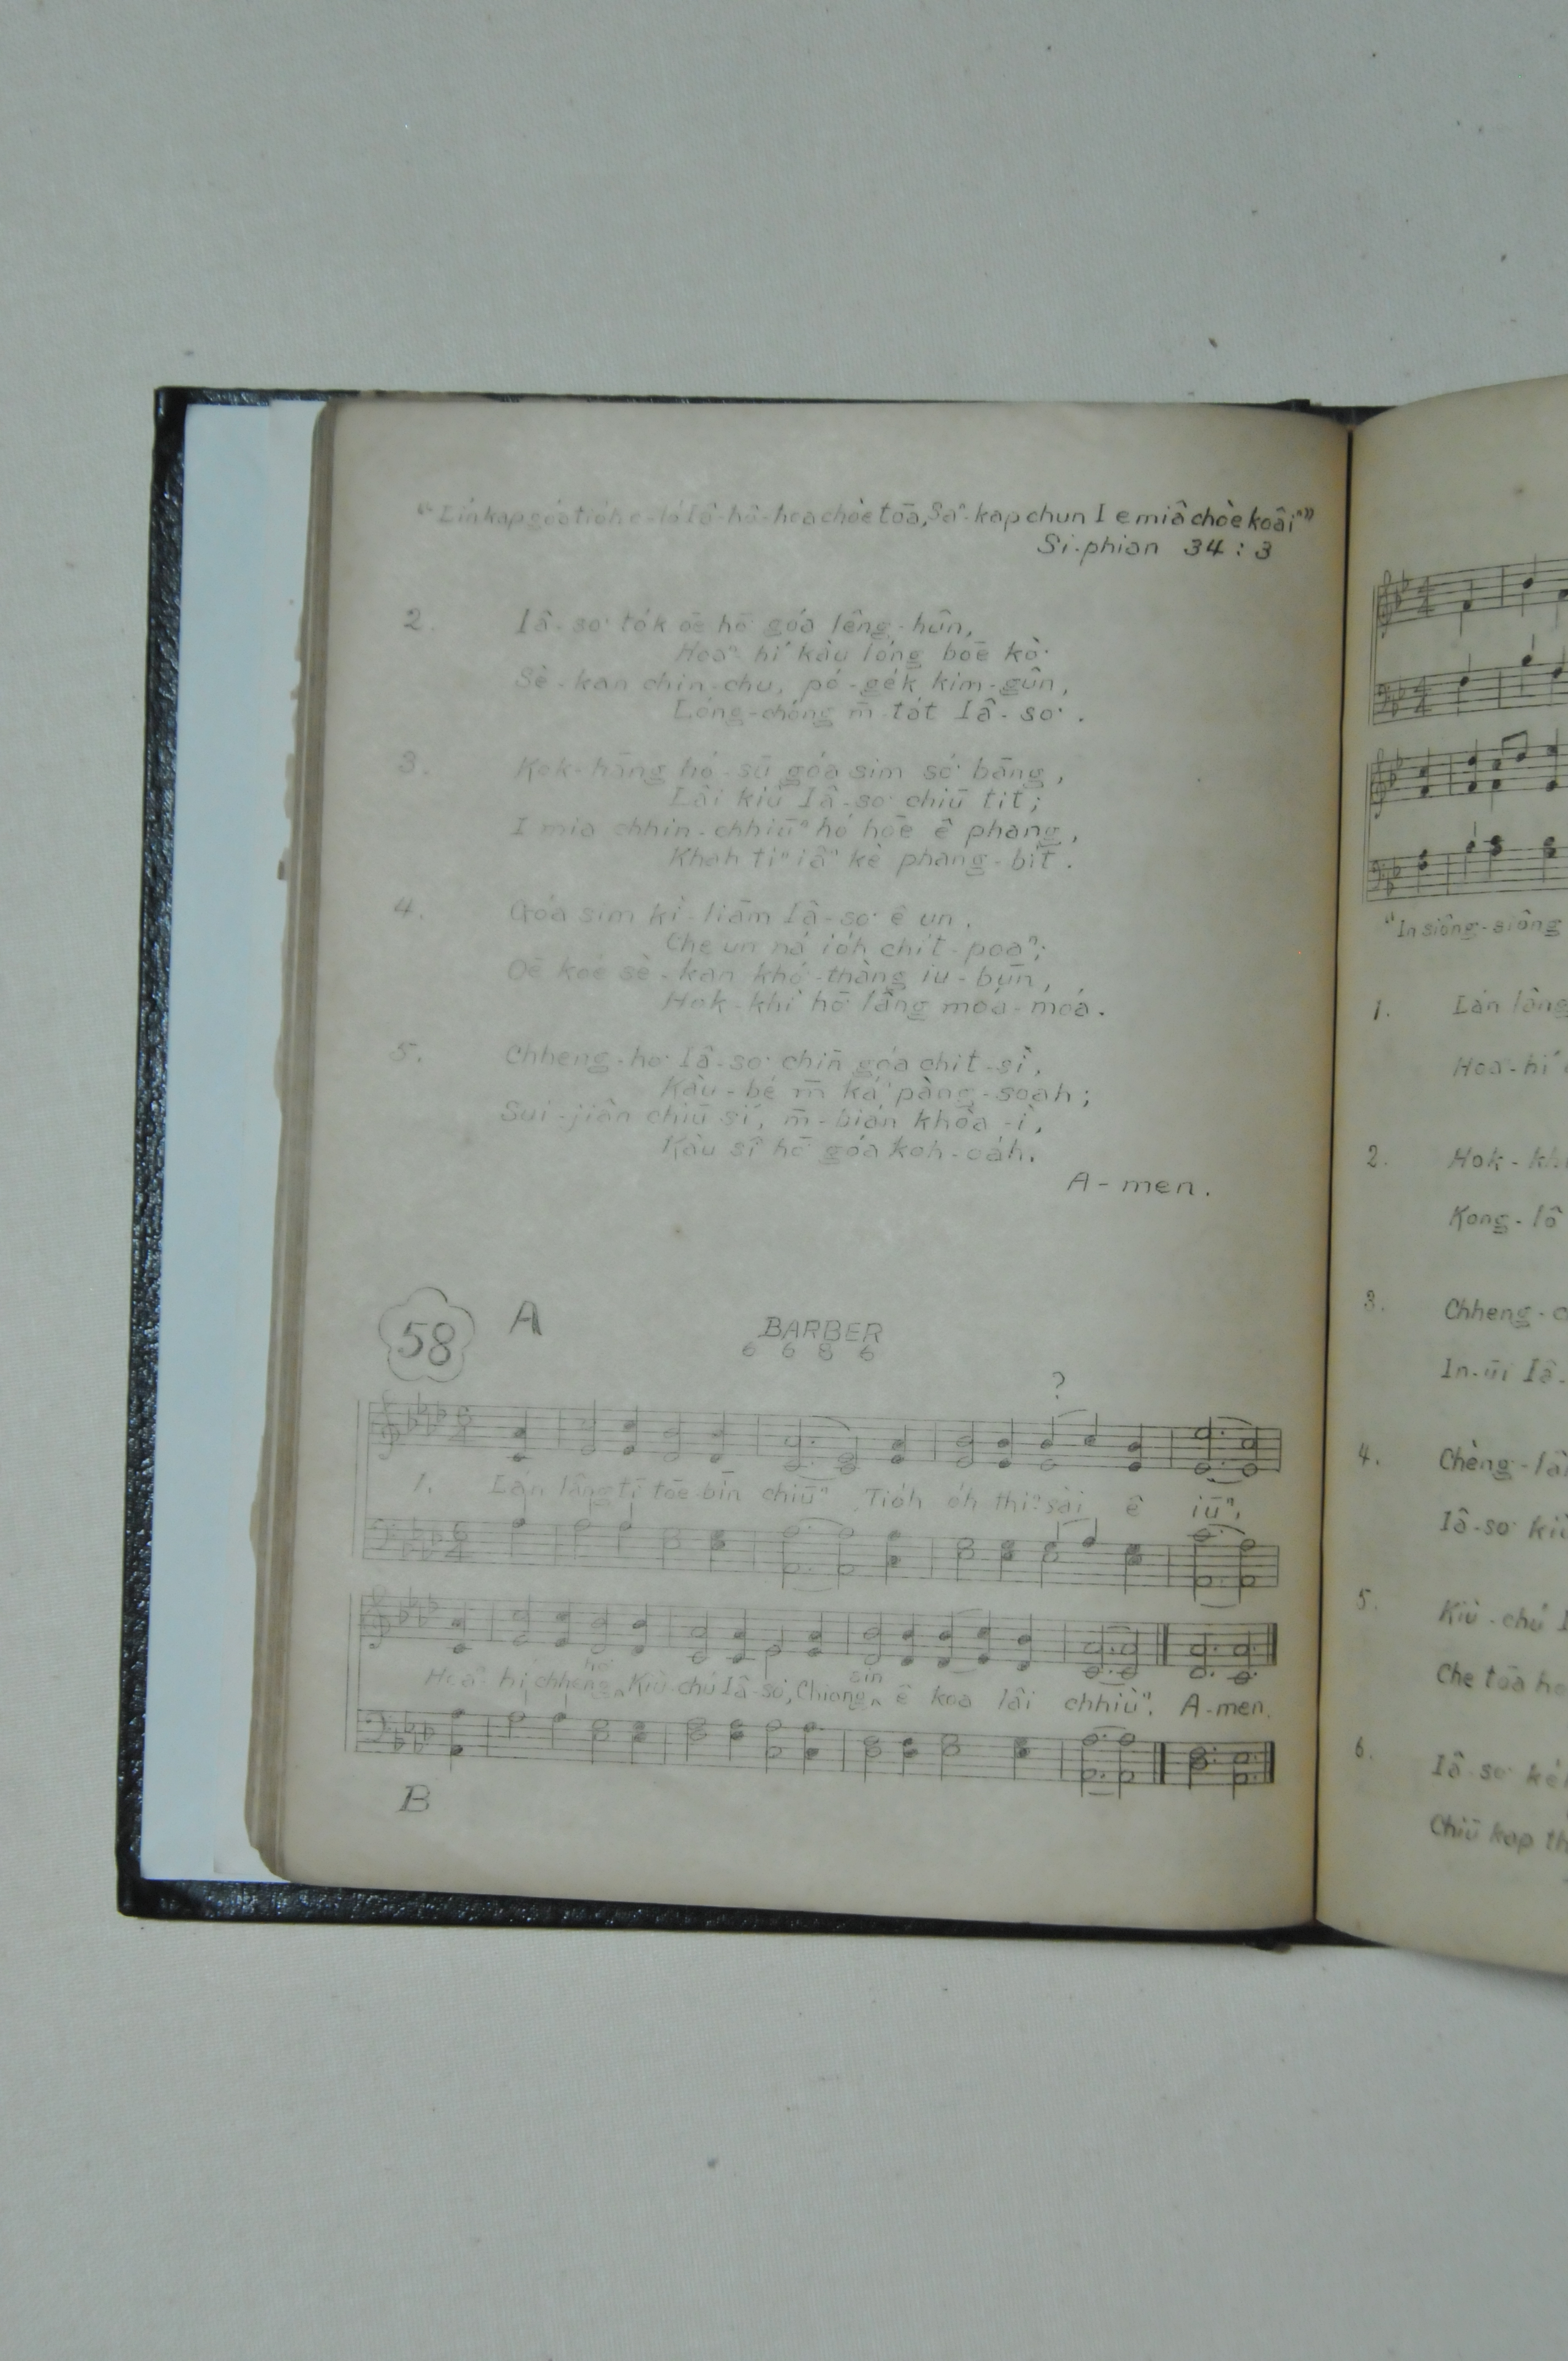 “Lín kap góa tio̍h o-ló Iâ-hô-hoa chòe tōa, Saⁿ-kap chun I e miâ chòe koâiⁿ”
Si-phian 34 : 3
2. Iâ-so͘ to̍k ōe hō͘ góa lêng-hûn,
Hoaⁿ-hí kàu lóng bōe kò͘
Sè-kan chin-chu, pó-ge̍k kim-gûn,
Lóng-chóng m̄-ta̍t Iâ-so͘.
3. Kok-hāng hó-sū góa sim só͘ bāng,
Lâi kiû Iâ-so͘ chiū tit;
I miâ chhin-chhiūⁿ hó hoe ê phang,
Khah tiⁿ iâⁿ kè phang-bi̍t.
4. Góa sim kì-liām Iâ-so͘ ê un,
Che un ná io̍h chi̍t-poaⁿ;
Ōe koé sè-kan khó͘-thàng iu-būn,
Hok-khì hō͘ lâng moá-moá.
5. Chheng-ho͘ Iâ-so͘ chīn góa chi̍t-sì,
Kàu-bé m̄ káⁿ pàng-soah;
Sui-jiân chiū sí, m̄-bián khòa-ì,
Kàu sî hō͘ góa koh-oa̍h.
A-men.
58 A BARBER
6 6 8 6
?
1. Lán lâng tī tōe-bīn chiūⁿ Tio̍h o̍h thiⁿ-sài ê iūⁿ,
Hoaⁿ-hí chheng-ho͘ Kiù-chú Iâ-so͘, Chiong sin ê koa lâi chhiùⁿ. A-men.
B
“In siông-siông
1. Lán lâng
Hoaⁿ-hí
2. Hok-khì
Kong-lô
3. Chheng-
In-ūi Iâ-
4. Chèng-lâi
Iâ-so͘ kiù
5. Kiù-chú
Che tōa
6. Iâ-so͘
Chiū kap